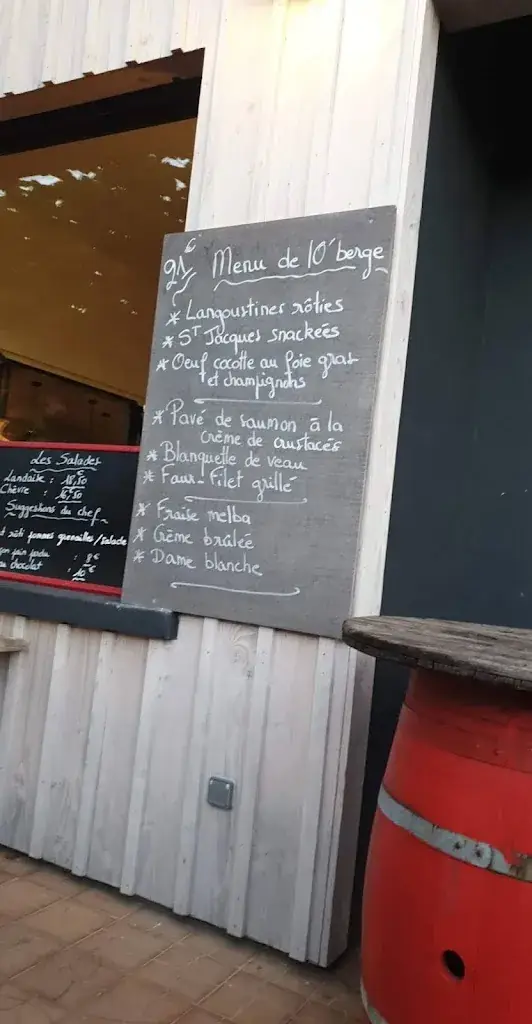 21€ Menu de l'O'berge
* Langoustines rôties
* ST Jacques snackées
* Oeuf cocotte au foie gras
et champignons
* Pavé de saumon à la
Crème de crustacés
* Blanquette de veau
* Faux-Filet grillé
* Fraise melba
* Crème brûlée
* Dame blanche
Les Salades
Landaise : 18,50
Chèvre : 16,50
Suggestions du chef
rôti pommes grenailles/salade
: 8€
chocolat : 10€